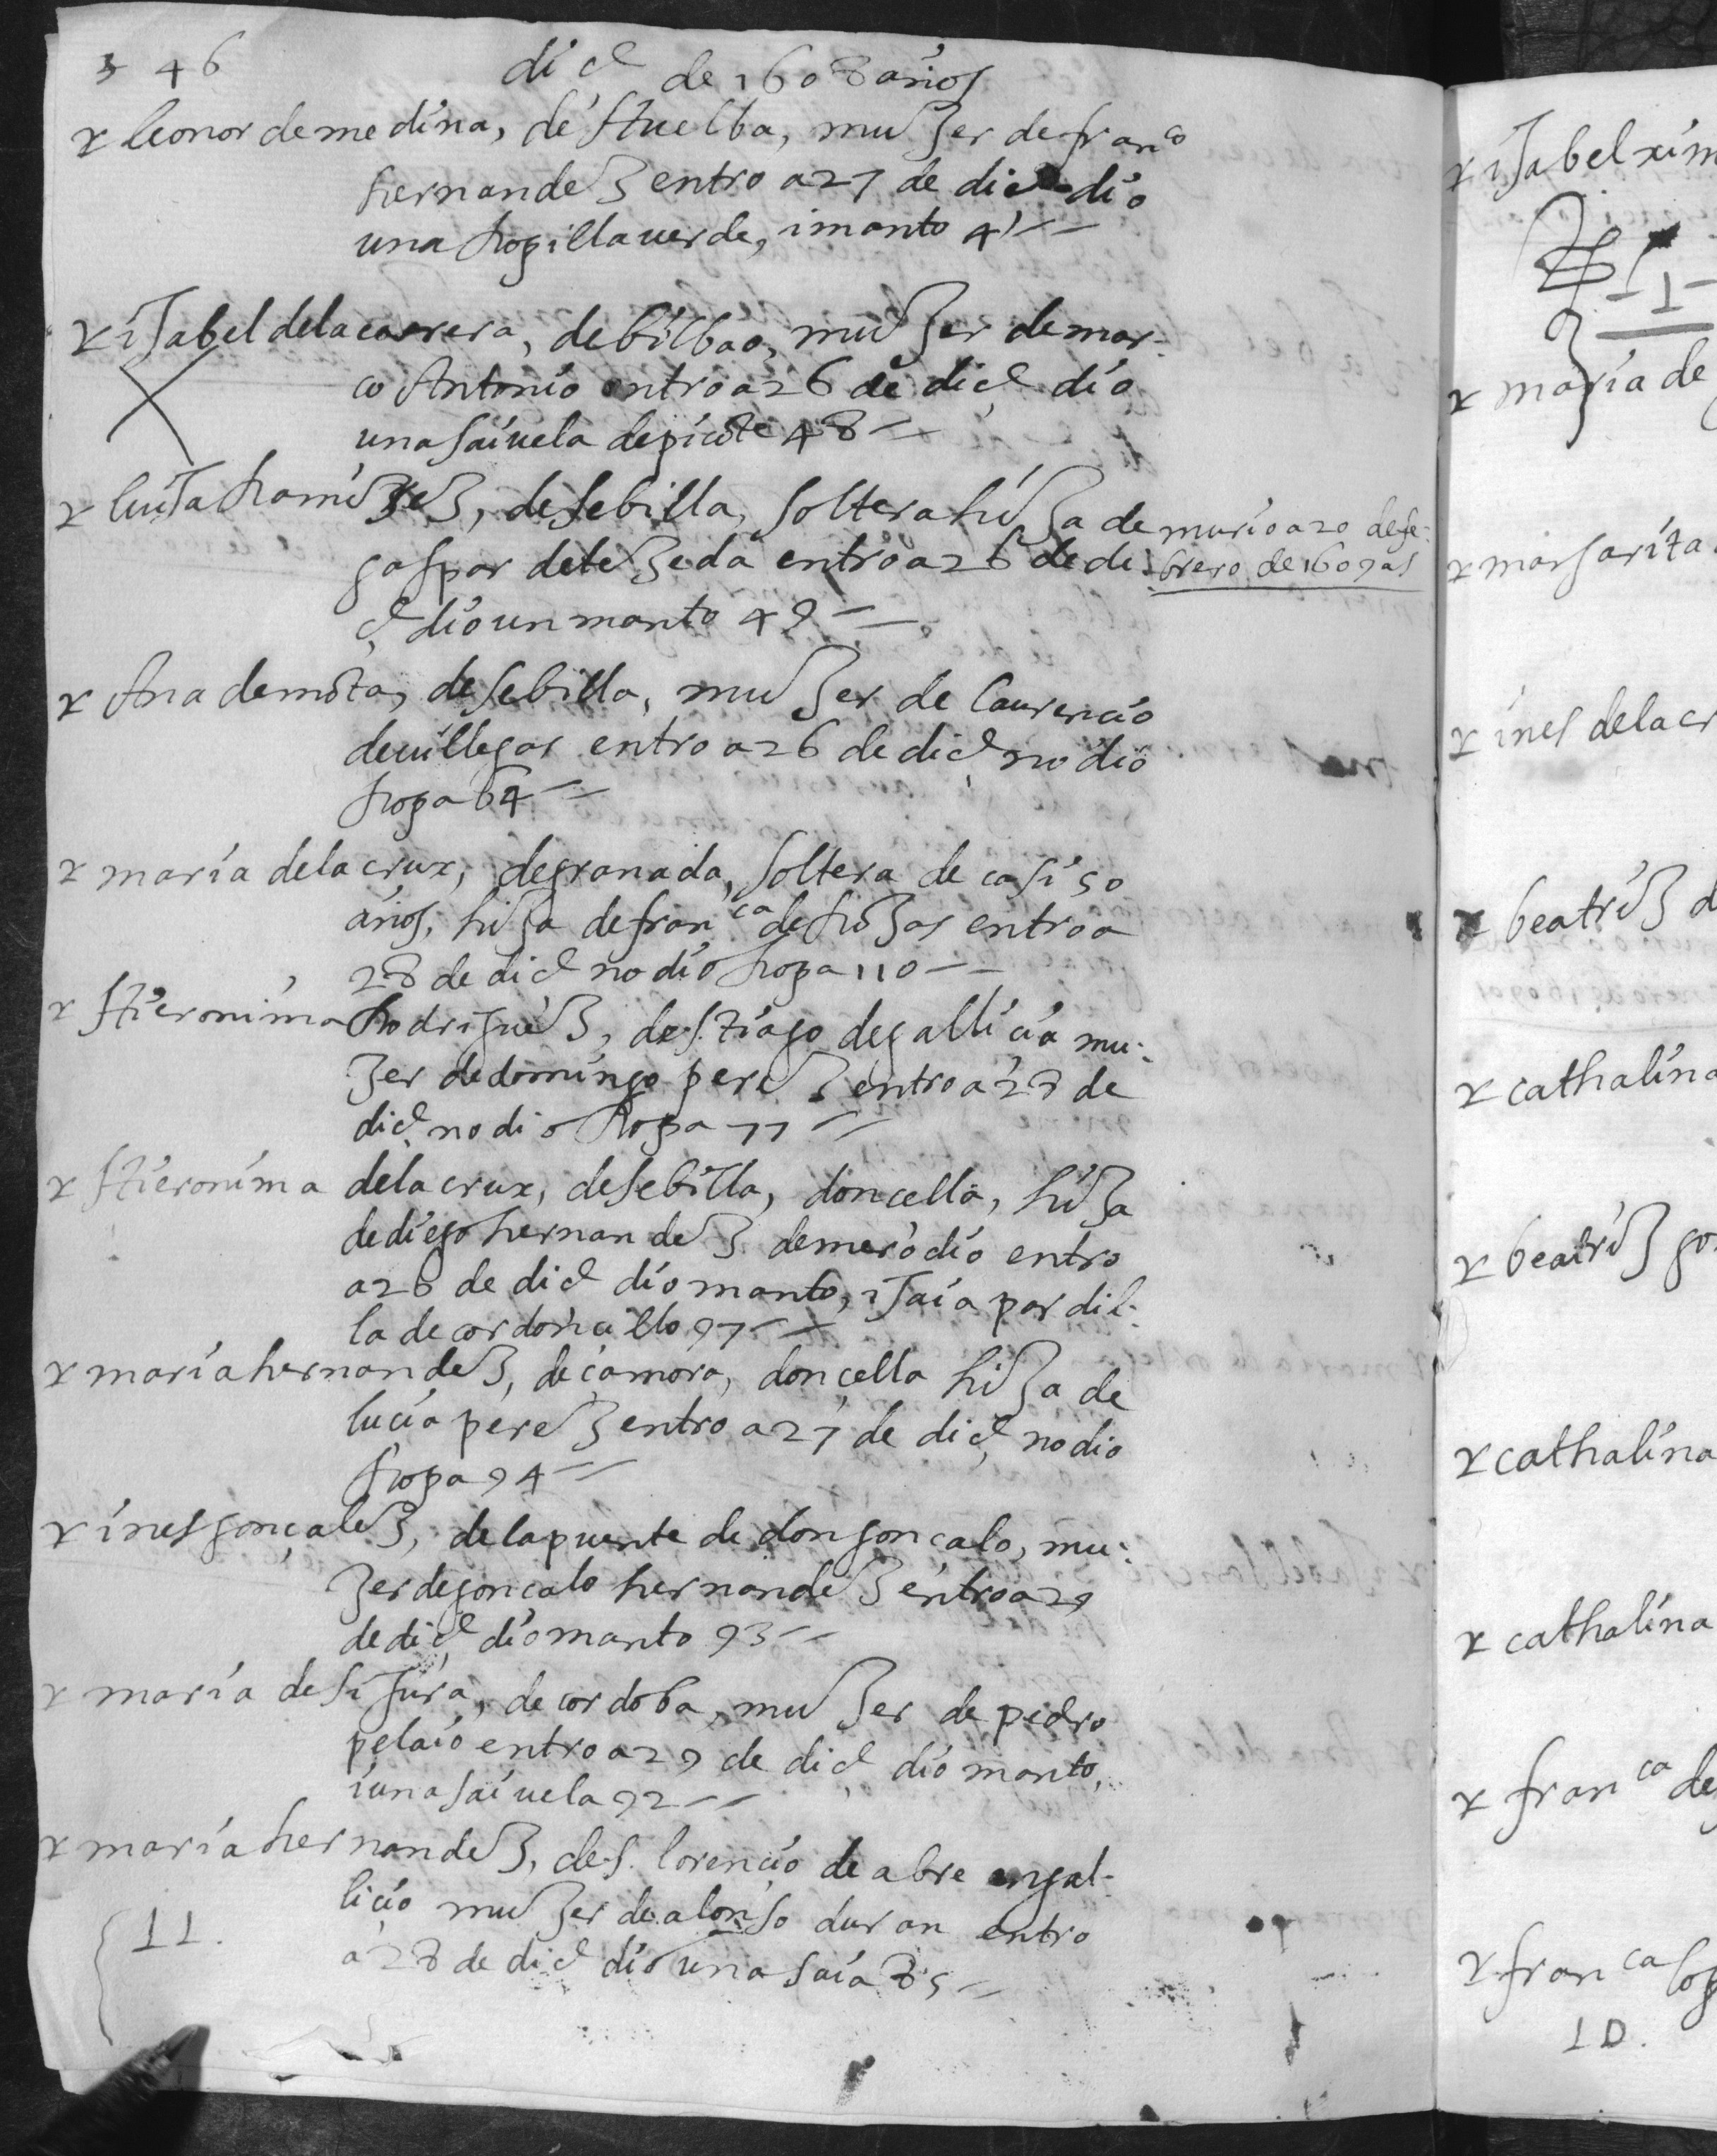 346
dic̃ de 1608 años
x leonor de medina, de huelba, muʒer de fran.co
hernandeʒ entro a 27 de dic̃ dio
una ropilla uerde, i manto 41
x isabel de la carrera, de bilbao, muʒer de mar-
co Antonio entro a 26 de dic̃ dio
una saiuela de picote 48
x luisa ramireʒ, de sebilla, soltera hiʒa de
gaspar de teʒeda entro a 26 de di-
c̃ dio un manto 49
murio a 20 de fe-
brero de 1609 as
x Ana de mota, de sebilla, muʒer de laurencio
de uillegas entro a 26 de dic̃ no dio
ropa 64
x maria de la crux, de granada, soltera de casi 50
años, hiʒa de fran.ca de roʒas entro a
28 de dic̃ no dio ropa 110
x hieronima rodrigueʒ, de s.tiago de gallicia mu-
ʒer de domingo pereʒ entro a 28 de
dic̃ no dio ropa 77
x hieronima de la crux, de sebilla, doncella, hiʒa
de diego hernandeʒ de merodio entro
a 28 de dic̃ dio manto, i saia pardil-
la de cordoncillo 97
x maria hernandeʒ, de çamora, doncella hiʒa de
lucia pereʒ entro a 27 de dic̃ no dio
ropa 94
x ines gonçaleʒ, de la puente de don goncalo, mu-
ʒer de goncalo hernandeʒ entro a 29
de dic̃ dio manto 93
x maria de sigura, de cordoba, muʒer de pedro
pelaio entro a 29 de dic̃ dio manto,
i una saiuela 92
x maria hernandeʒ, de s. lorencio de abre en gal-
licio muʒer de alonso duran entro
a 28 de dic̃ dio una saia 85
11.
x isabel xim
x maria de
x margarita
x ines de la cr
x beatriʒ d
x cathalina
x beatriʒ go
x cathalina
x cathalina
x fran.ca de
x fran.ca lop
10.